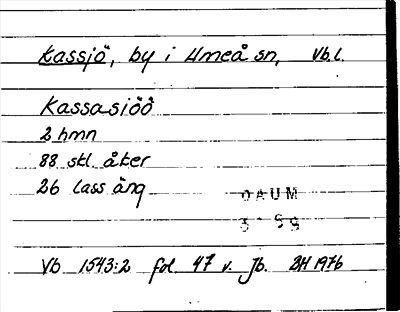 Kassjö, by i Umeå sn, Vb.l.
Kassasiöö
2 hmn
88 skl. åker
26 lass äng
DAUM
Vb 1543:2 fol 47 v. Jb. BH 1976